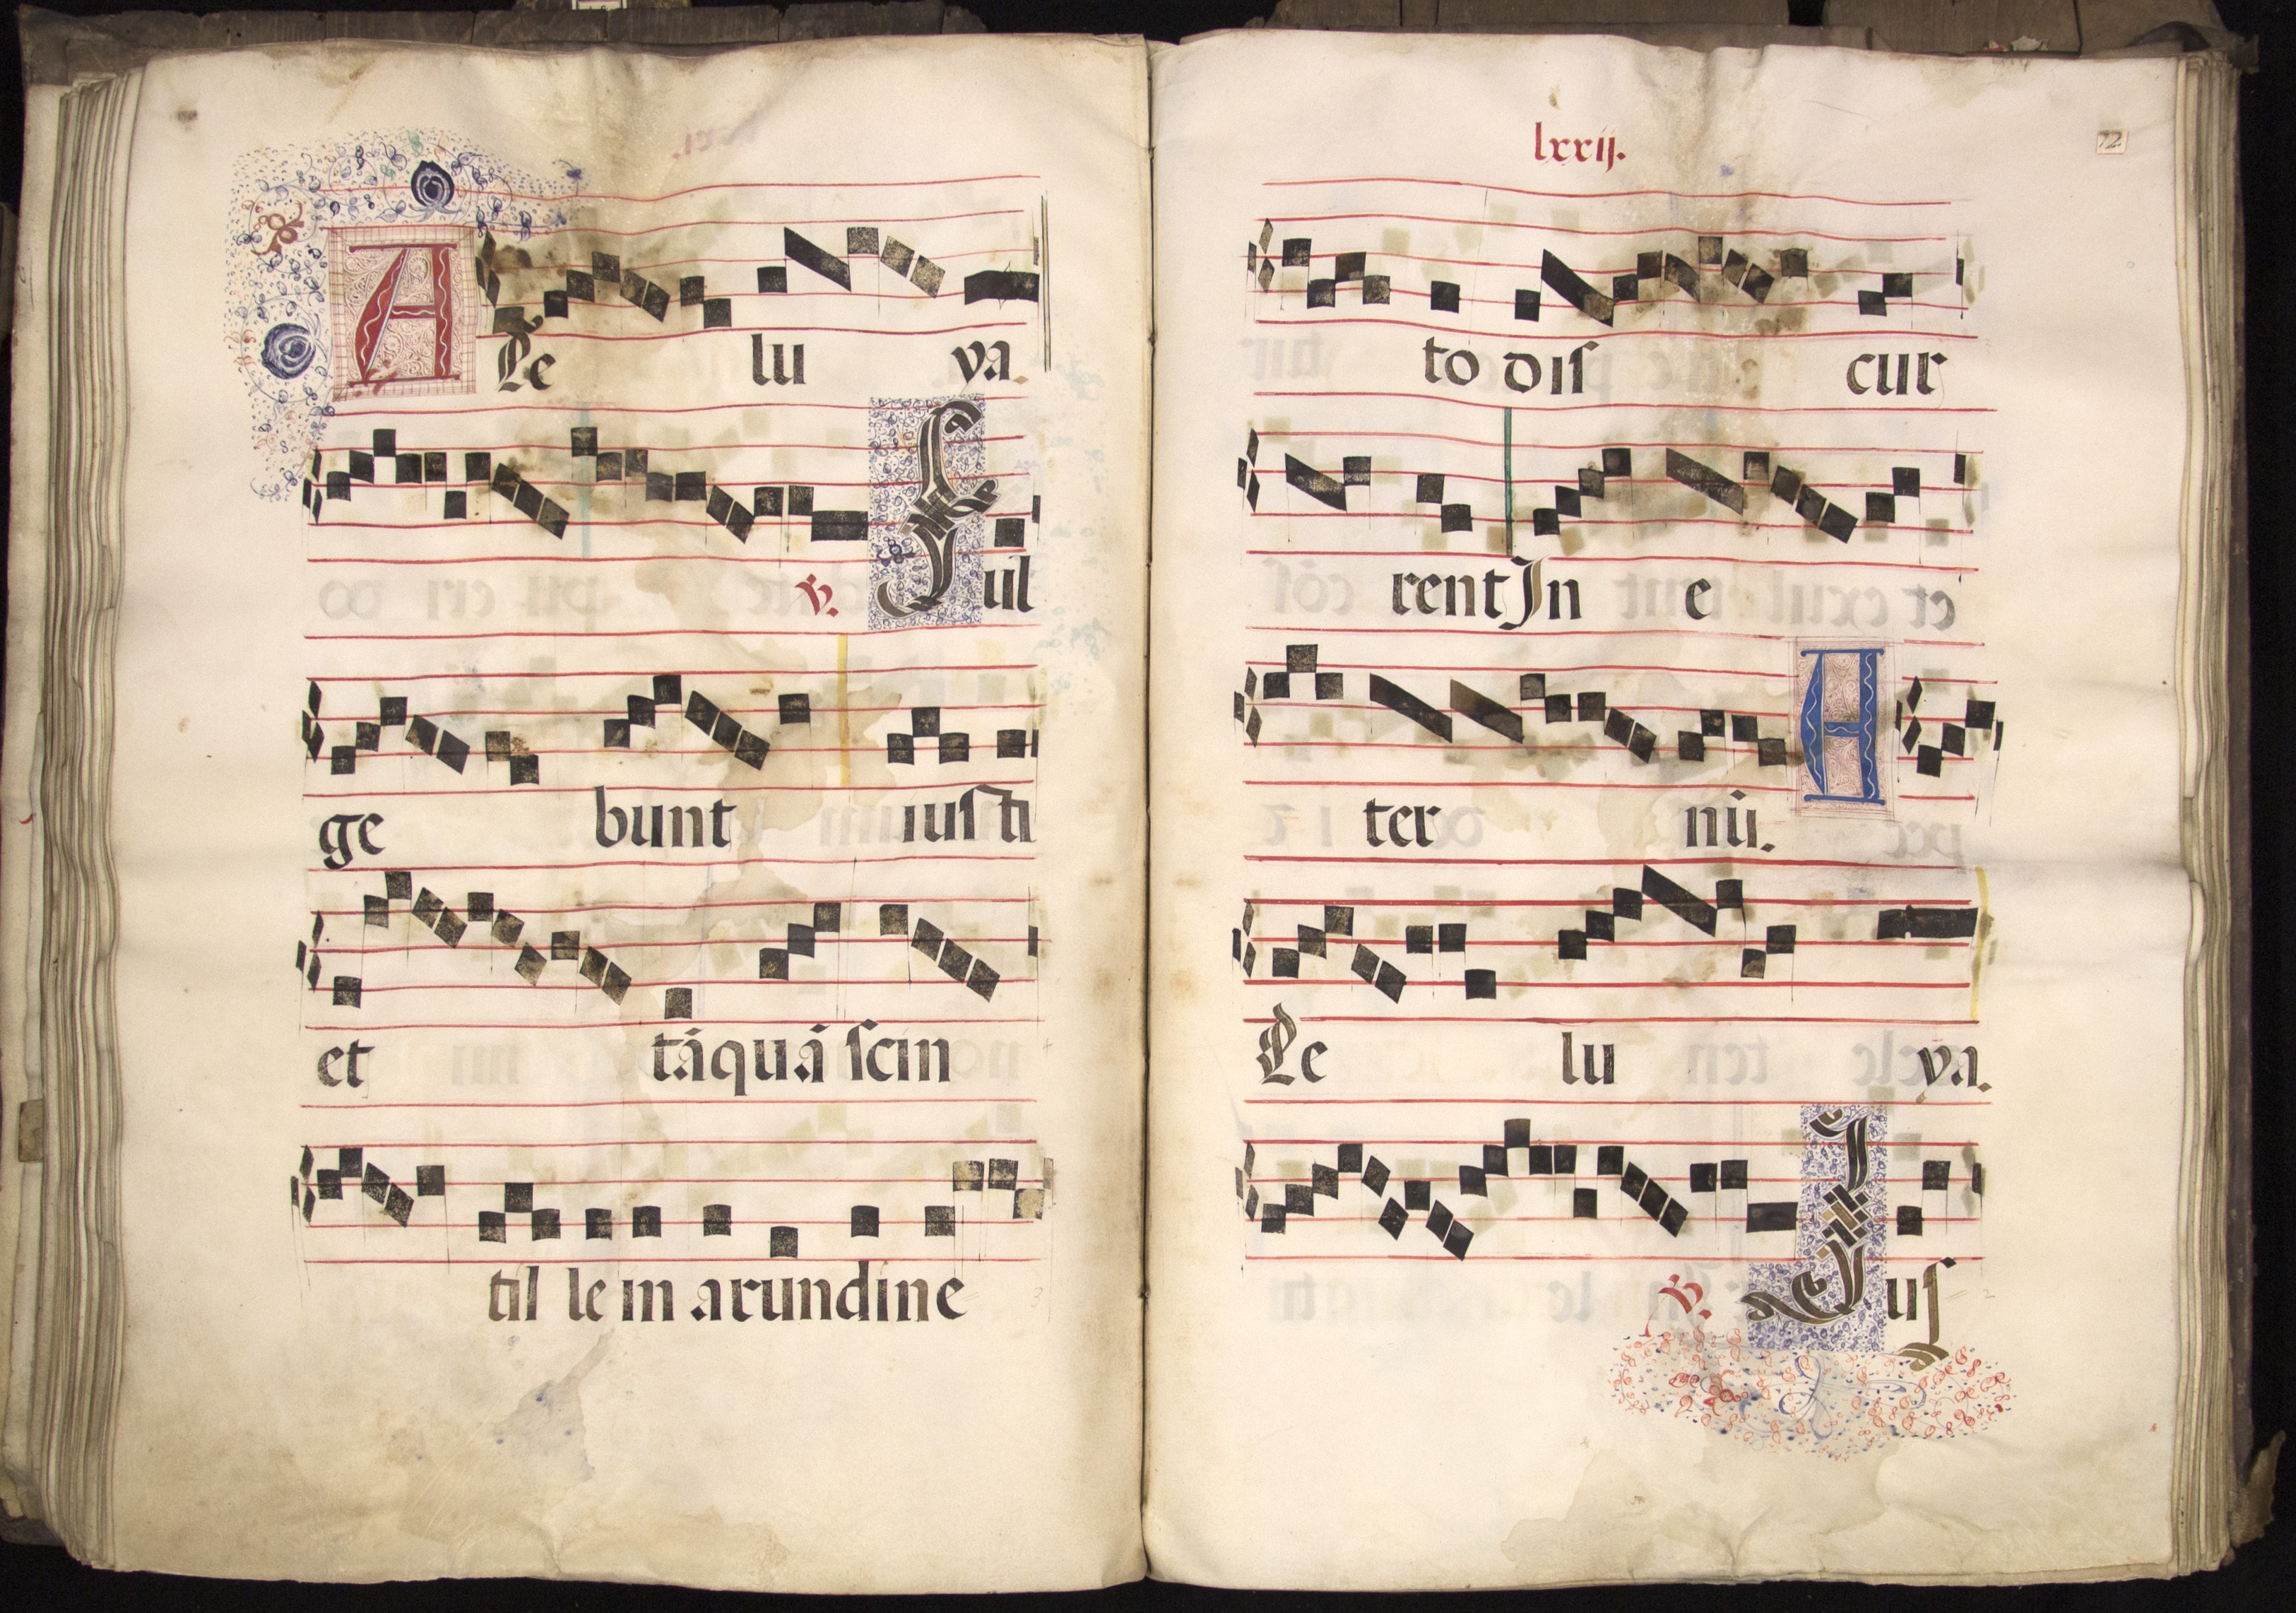 ALe lu ya.
℣. Ful
ge bunt iusti
et tāquā scin
til le in arundine
lxxij.
72
to dis cur
rent In e
ter nū. A
Le lu ya.
℣. Jus